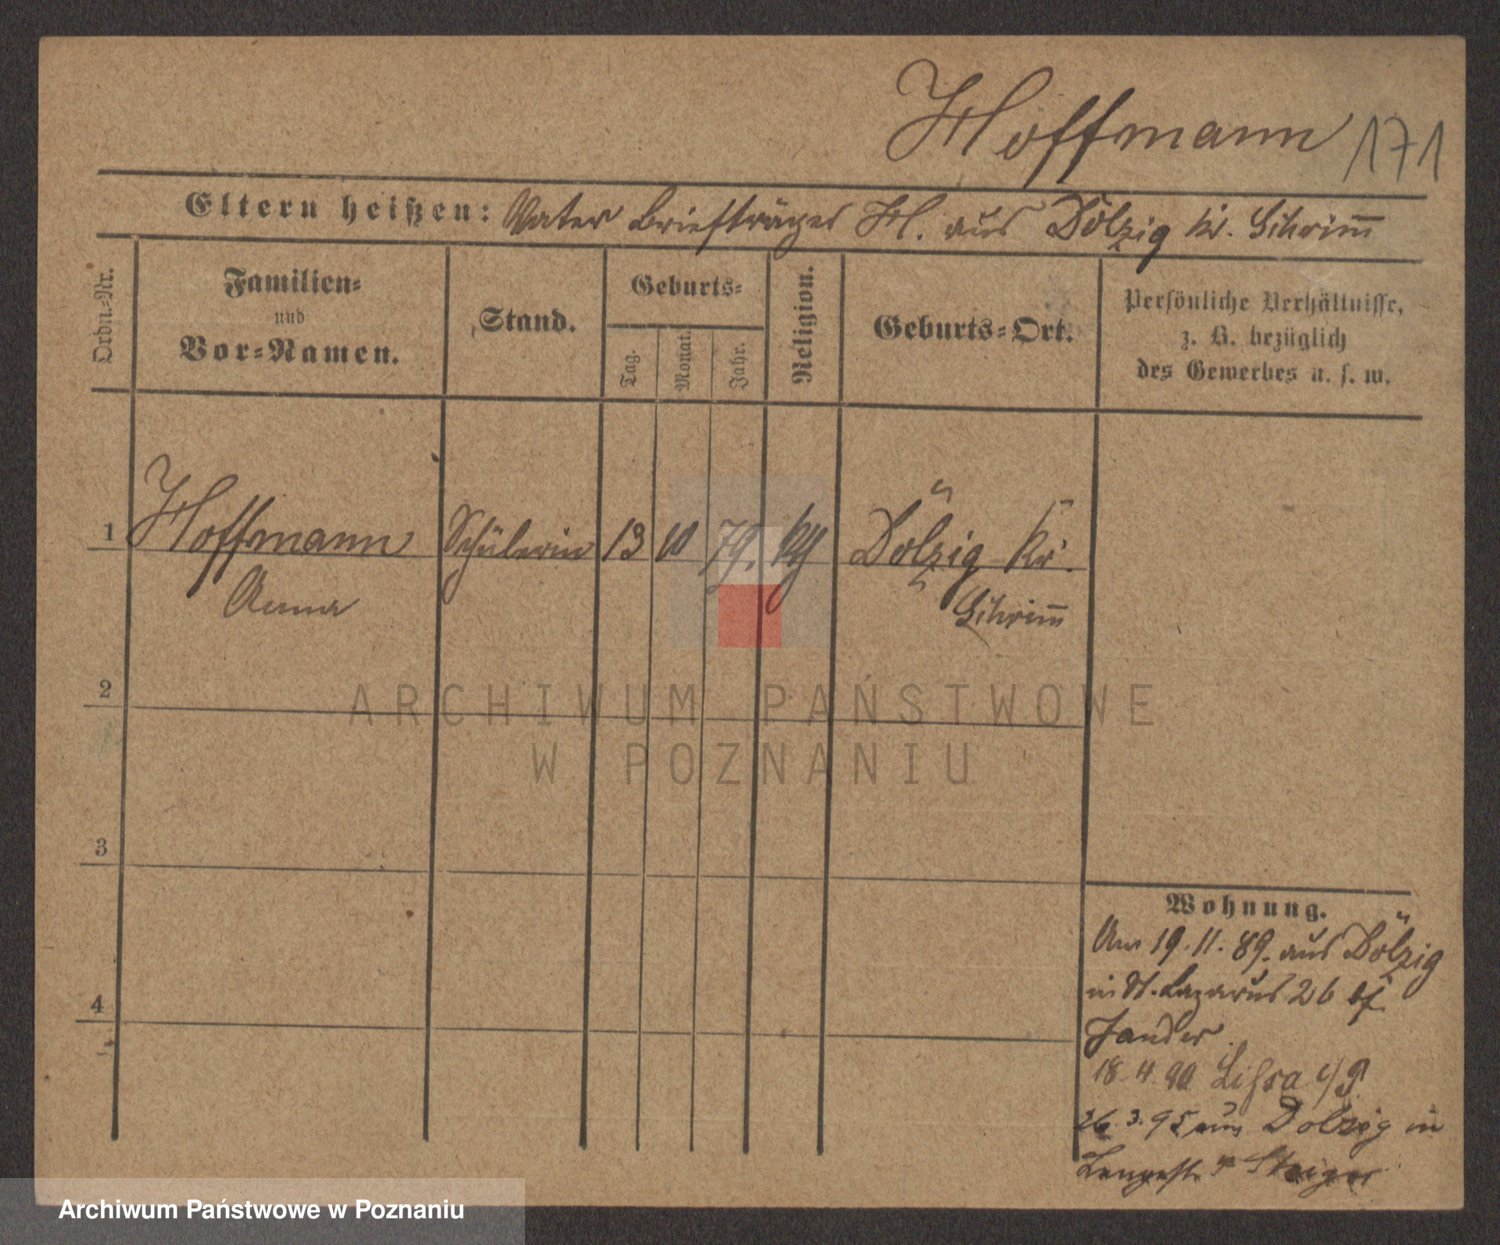 Hoffmann 171
Eltern heißen: Vater Briefträger H. aus Dolzig Kr. Schrimm
Ordn.-Nr.
Familien-
und
Vor-Namen.
Stand.
Geburts-
Tag.
Monat.
Jahr.
Religion.
Geburts-Ort.
Persönliche Verhältnisse,
z. B. bezüglich
des Gewerbes u. s. w.
1 Hoffmann Schülerin 13 10 79. Dolzig Kr.
Anna Schrimm
2
ARCHIWUM PAŃSTWOWE
W POZNANIU
3
4
Wohnung.
Am 19. 11. 89. aus Dolzig
in St. Lazarus 26 bj
Jander
18. 4. 90 Lissa i/P
26. 3. 95 aus Dolzig in
Steiger
Archiwum Państwowe w Poznaniu